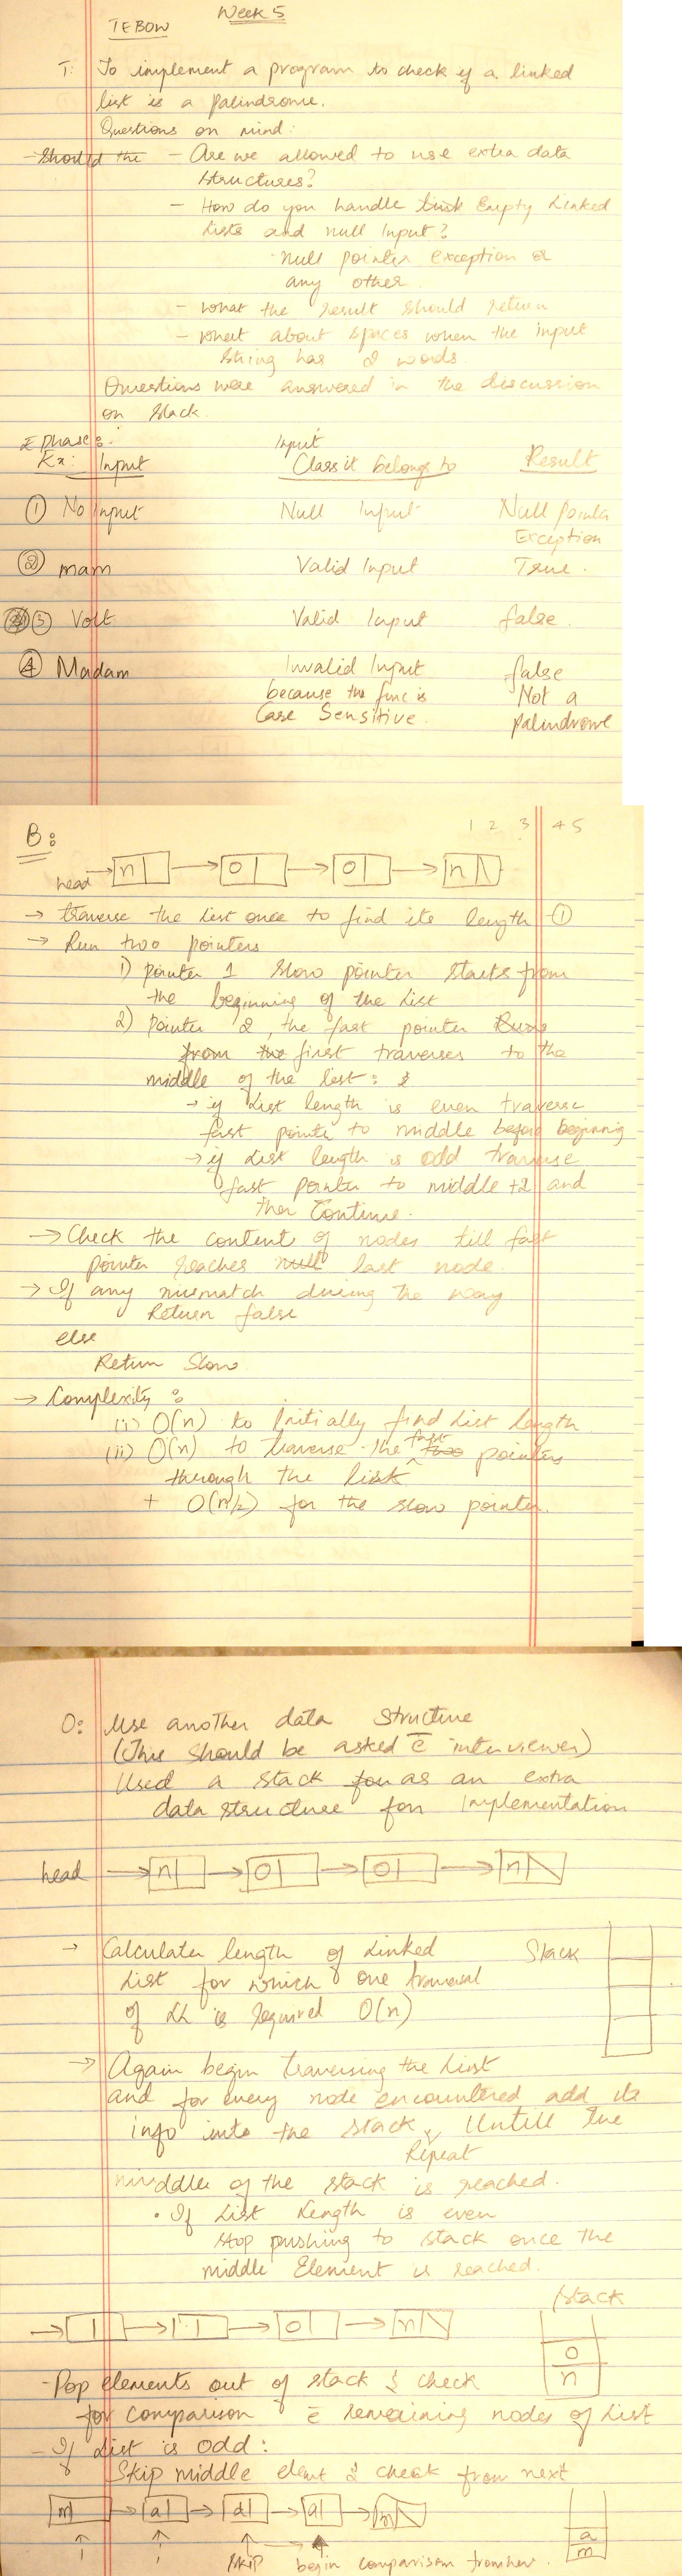 Week 5
TEBOW
T: To implement a program to check if a linked
list is a palindrome.
Questions on mind:
- Should the - Are we allowed to use extra data
structures?
- How do you handle Empty Linked
Lists and null Input?
Null pointer exception or
any other
- what the result should return
- what about spaces when the input
string has 2 words.
Questions were answered in the discussion
on slack.
E phase:-
Ex: Input Input Class it belongs to Result
① No Input Null Input Null Pointer
Exception
② mam Valid Input True.
③ Volt Valid Input false.
④ Madam Invalid Input false
because the func is Not a
Case Sensitive. palindrome
B: 1 2 3 4 5
head → n → o → o → n
→ traverse the list once to find its length ①
→ Run two pointers
1) pointer 1 slow pointer starts from
the beginning of the list
2) Pointer 2, the fast pointer Runs
from the first traverses to the
middle of the list:
→ if list length is even traverse
fast pointer to middle before beginning
→ if list length is odd traverse
fast pointer to middle +2 and
then Continue.
→ Check the content of nodes till fast
pointer reaches null last node.
→ If any mismatch during the way
Return false
else
Return Slow.
→ Complexity:
(i) O(n) to Initially find list length
(ii) O(n) to traverse the fast two pointers
through the list
+ O(n/2) for the slow pointer.
O: Use another data structure
(This should be asked c̄ interviewer)
Used a stack for as an extra
data structure for Implementation
head → n → o → o → n
→ Calculates length of Linked Stack
List for which one traversal
of LL is required O(n)
→ Again begin traversing the List
and for every node encountered add its
info into the stack, Untill the
Repeat
middle of the stack is reached.
• If List Length is even
stop pushing to stack once the
middle Element is reached.
stack
→ → → o → n
o
n
- Pop elements out of stack & check
for comparison c̄ remaining nodes of List
- If List is odd:
Skip middle elemt & check from next
m → a → d → a → m
a
m
skip begin comparison from here.